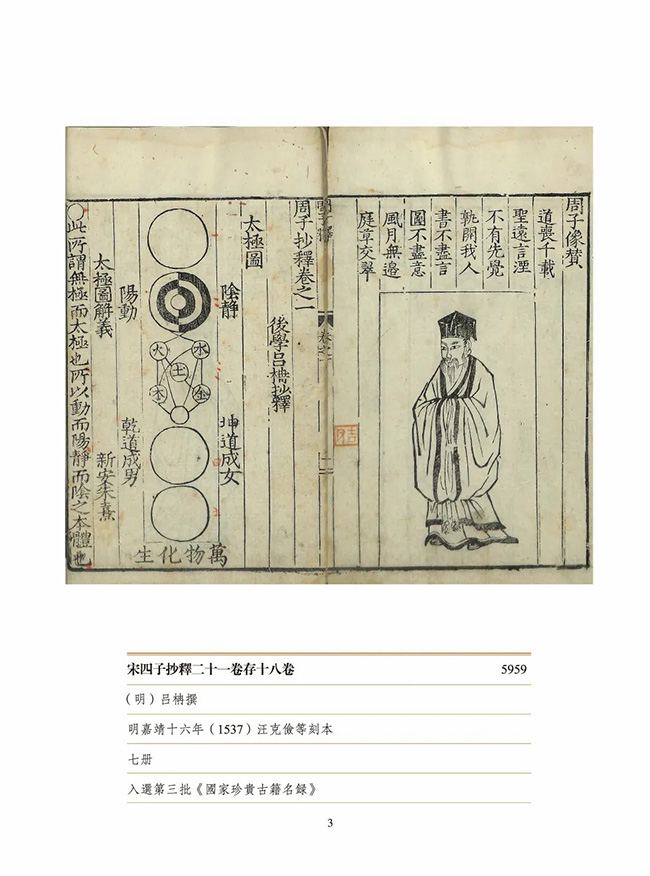 周子像賛
道喪千載
聖遠言湮
不有先覺
孰開我人
書不盡言
圖不盡意
風月無邊
庭草交翠
周子抄釋卷之一
後學呂柟抄釋
太極圖
陰静
坤道成女
水
火
土
金
木
萬物化生
陽動
乾道成男
太極圖解義
新安朱熹
○此所謂無極而太極也所以動而陽静而陰之本體也
宋四子抄釋二十一卷存十八卷 5959
（明）吕柟撰
明嘉靖十六年（1537）汪克儉等刻本
七册
入選第三批《國家珍貴古籍名録》
3